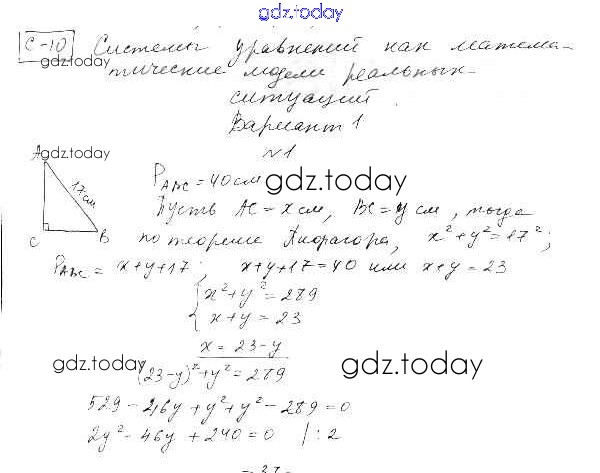 gdz.today
С-10 Системы уравнений как матема-
gdz.today
тические модели реальных
ситуаций.
Вариант 1
№1
A gdz.today
17см
P_ABC = 40 см gdz.today
Пусть AC = x см, BC = y см, тогда
C B
по теореме Пифагора, x² + y² = 17²;
P_ABC = x+y+17; x+y+17=40 или x+y=23
{ x² + y² = 289
x + y = 23
x = 23 - y
gdz.today gdz.today
(23-y)² + y² = 289
529 - 46y + y² + y² - 289 = 0
2y² - 46y + 240 = 0 / : 2